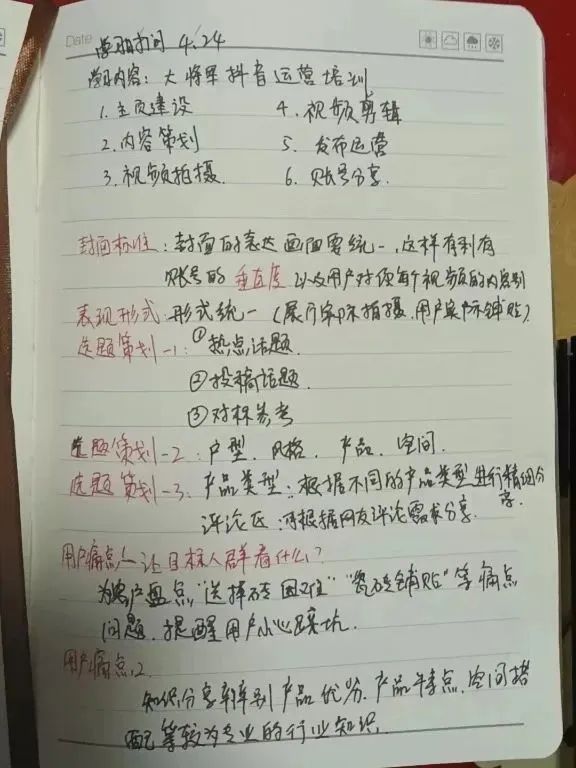 Date
学习时间 4.24
学习内容：大将军抖音运营培训
1.主页建设 4.视频剪辑
2.内容策划 5.发布运营
3.视频拍摄. 6.账号分享.
封面标准：封面的表达画面要统一,这样有利有
账号的垂直度 以及用户对频每个视频的内容别
表现形式：形式统一（展厅实际拍摄.用户实际铺贴）.
选题策划-1：①热点话题.
②投稿话题.
③对标参考
选题策划-2：户型、风格、产品、空间.
选题策划-3：产品类型：根据不同的产品类型进行精细分
享.
评论区：可根据网友评论需求分享.
用户痛点1-让目标人群看什么?
为客户盘点"选择砖困难""瓷砖铺贴"等痛点
问题.提醒用户小心踩坑.
用户痛点2.
知识分享辨别产品优劣.产品特点.空间搭
配等较为专业的行业知识.